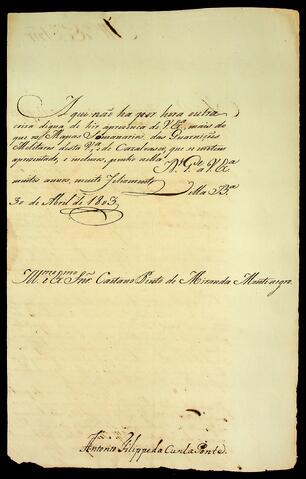 Aqui não ha por hora outra
coiza digna de hir aprezença de V. Exª. mais do
que os Mapas Semanarios, das Guarniçoẽs
Militares desta V.ª de Cazalvasco, que se metem
aprezentado, e incluzos, 
N. G.e a V. Exª
muitos annos, muito felixmente. Villa Bª
30 de Abril de 1803.
Ill.mo e Ex.mo Snr. Caetano Pinto de Miranda Montenegro.
Antonio Filippe da Cunha Ponte.